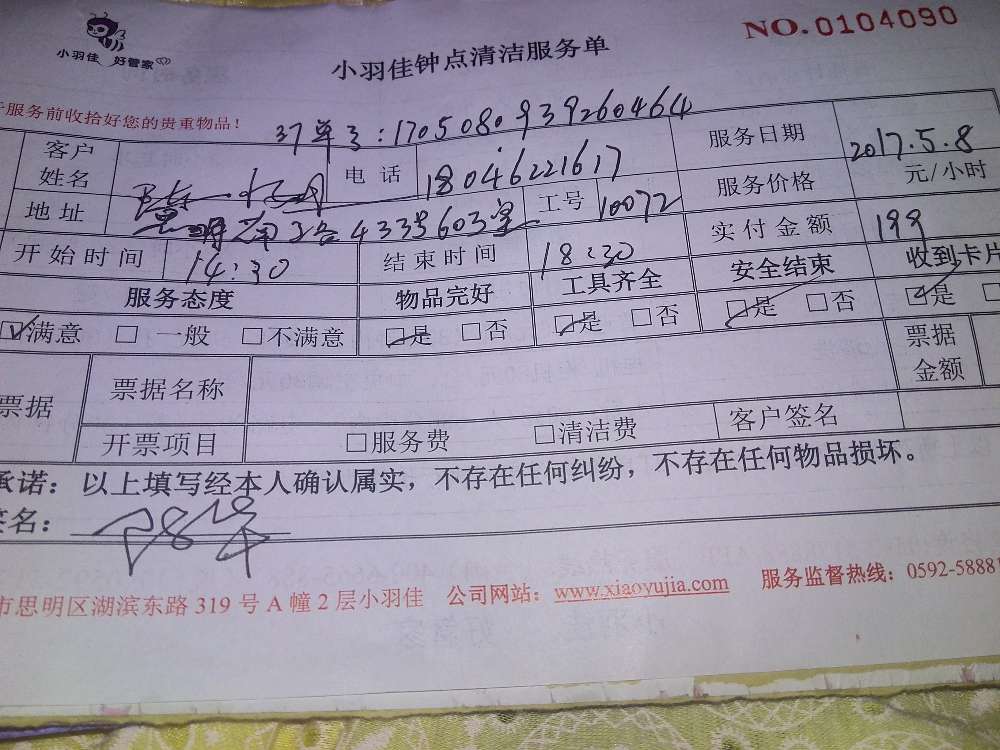 小羽佳 好管家
小羽佳钟点清洁服务单
NO.0104090
服务前收拾好您的贵重物品!
订单号:1705080939260464
客户姓名 电话 18046221617 服务日期 2017.5.8
地址 433号603室 工号 10072 服务价格 元/小时
开始时间 14:30 结束时间 18:30 实付金额 199
服务态度 物品完好 工具齐全 安全结束 收到卡片
☑满意 □一般 □不满意 ☑是 □否 ☑是 □否 ☑是 □否 ☑是 □
票据 票据名称 票据金额
开票项目 □服务费 □清洁费 客户签名
承诺:以上填写经本人确认属实,不存在任何纠纷,不存在任何物品损坏。
签名:
市思明区湖滨东路319号A幢2层小羽佳 公司网站:www.xiaoyujia.com 服务监督热线:0592-58881